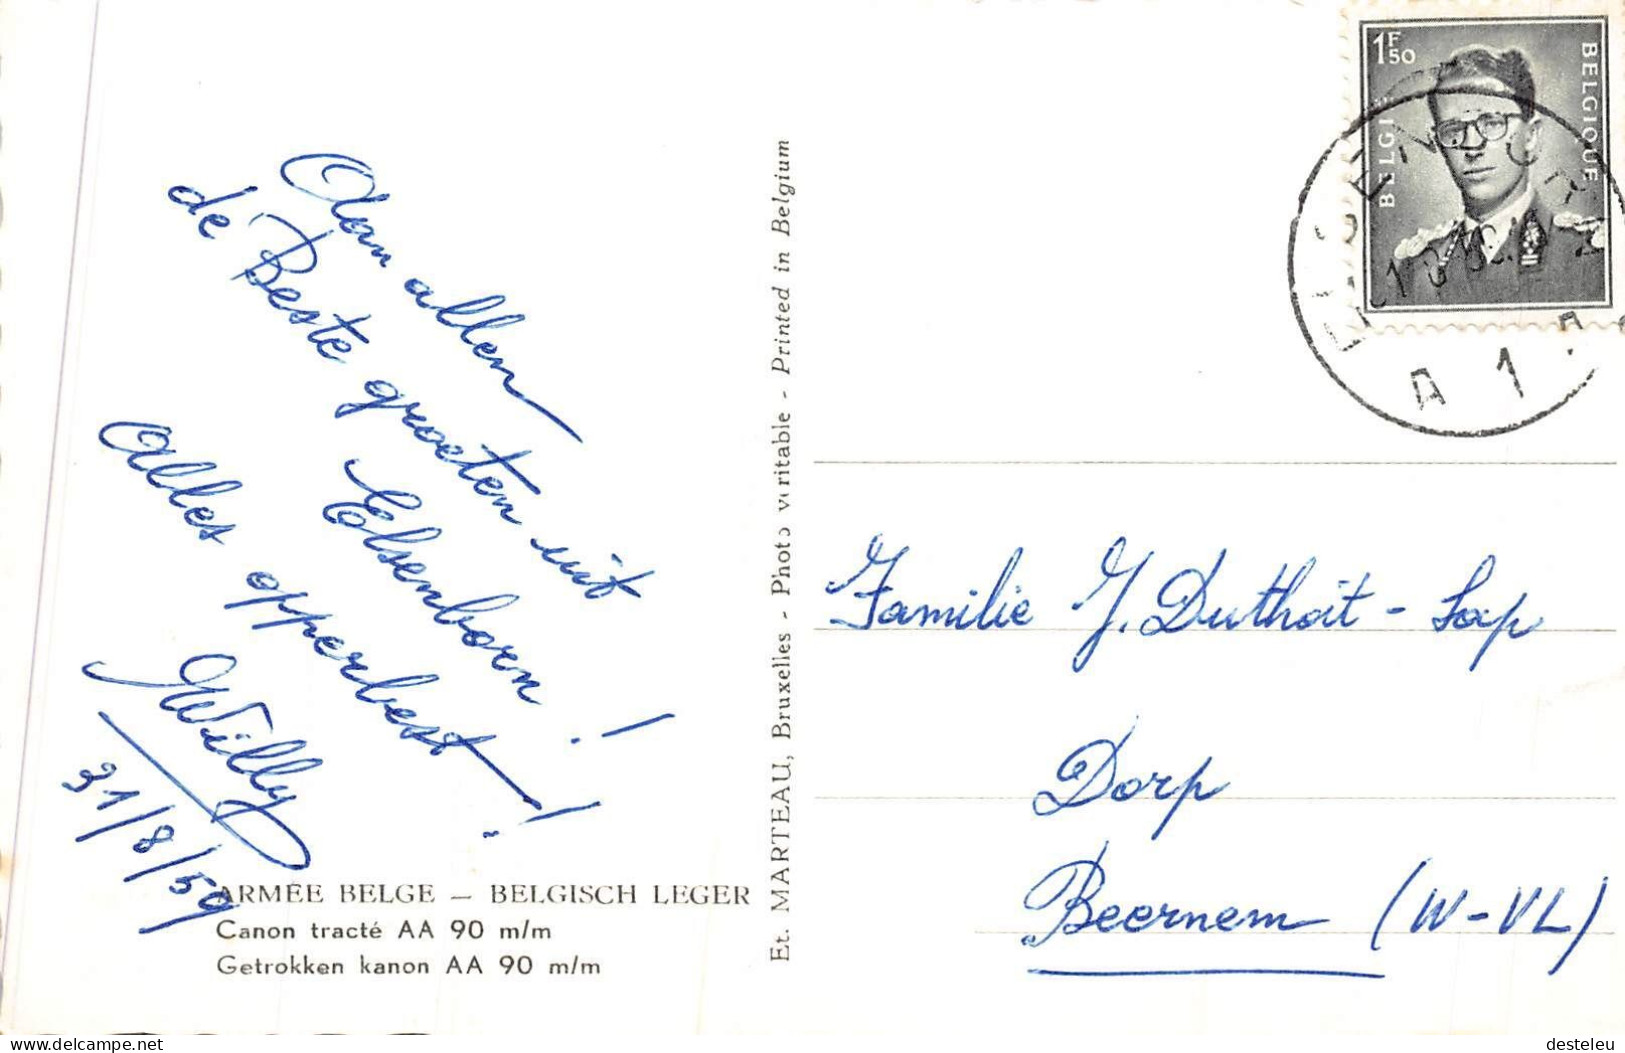 Aan allen
de Beste groeten uit
Elsenborn !
Alles opperbest !
Willy
31/8/59
ARMÉE BELGE — BELGISCH LEGER
Canon tracté AA 90 m/m
Getrokken kanon AA 90 m/m
Et. MARTEAU, Bruxelles - Photo véritable - Printed in Belgium
1F50
BELGIE
BELGIQUE
A 1
Familie J. Duthoit - Sap
Dorp
Beernem (W-VL)
delcampe.net
desteleu